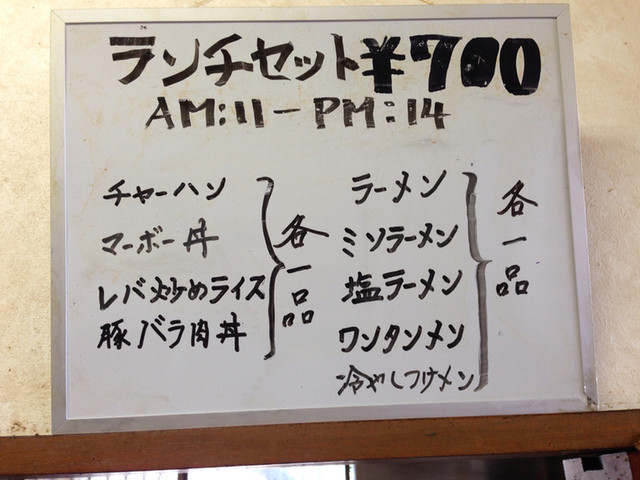 ランチセット¥700
AM:11-PM:14
チャーハン
マーボー丼
レバ炒めライス
豚バラ肉丼
各一品
ラーメン
ミソラーメン
塩ラーメン
ワンタンメン
冷やしつけメン
各一品